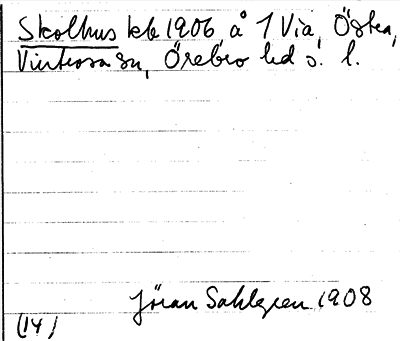 Skolhus kb 1906 å 1 Via, Östra,
Vintrosa sn, Örebro hd s. l.
Jöran Sahlgren 1908
(14)